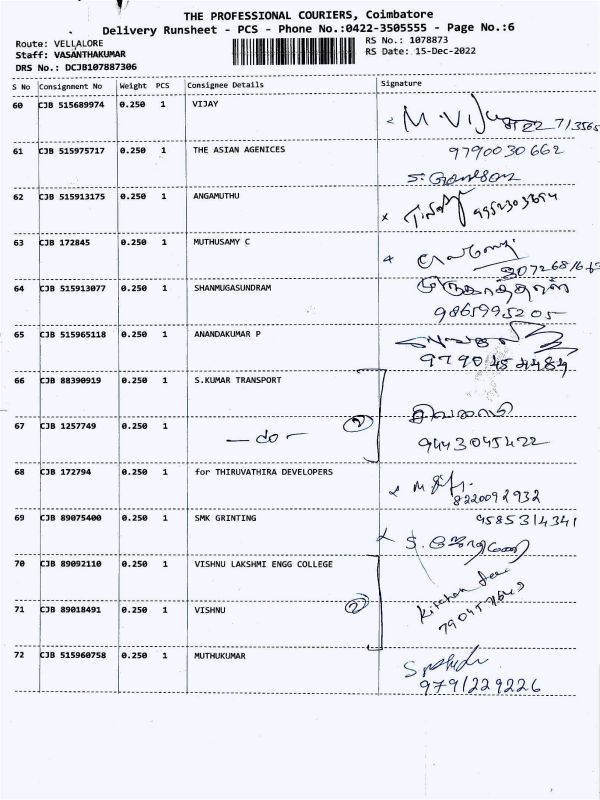 THE PROFESSIONAL COURIERS, Coimbatore
Delivery Runsheet - PCS - Phone No.:0422-3505555 - Page No.:6
Route: VELLALORE
Staff: VASANTHAKUMAR
DRS No.: DCJB107887306
RS No.: 1078873
RS Date: 15-Dec-2022
S No Consignment No Weight PCS Consignee Details Signature
60 CJB 515689974 0.250 1 VIJAY M.Vijay
61 CJB 515975717 0.250 1 THE ASIAN AGENICES 9790030662
62 CJB 515913175 0.250 1 ANGAMUTHU
63 CJB 172845 0.250 1 MUTHUSAMY C
64 CJB 515913077 0.250 1 SHANMUGASUNDRAM
9865995205
65 CJB 515965118 0.250 1 ANANDAKUMAR P
66 CJB 88390919 0.250 1 S.KUMAR TRANSPORT
67 CJB 1257749 0.250 1 — do — 2 9443045422
68 CJB 172794 0.250 1 for THIRUVATHIRA DEVELOPERS
8220092932
69 CJB 89075400 0.250 1 SMK GRINTING 9585314341
70 CJB 89092110 0.250 1 VISHNU LAKSHMI ENGG COLLEGE
71 CJB 89018491 0.250 1 VISHNU 2
72 CJB 515960758 0.250 1 MUTHUKUMAR
9791229226